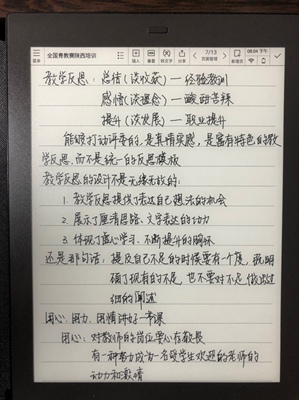 全国青教赛陕西培训
7/13
08:04 下午
菜单
页面管理
教学反思：总结（谈收获）— 经验教训
感悟（谈理念）— 酸甜苦辣
提升（谈发展）— 职业提升
能够打动评委的，是真情实感，是富有特色的教
学反思，而不是统一的反思模板
教学反思的设计不是无缘无故的：
1. 教学反思提供了表达自己想法的机会
2. 展示了厘清思路、文字表达的功力
3. 体现了虚心学习、不断提升的胸怀
还是那句话：提及自己不足的时候要有个度，我明
确了现有的不足，也不要对不足做过
细的阐述
用心、用力、用情讲好一节课
用心：对教师的岗位要心存敬畏
有一种努力成为一名受学生欢迎的老师的
动力和激情